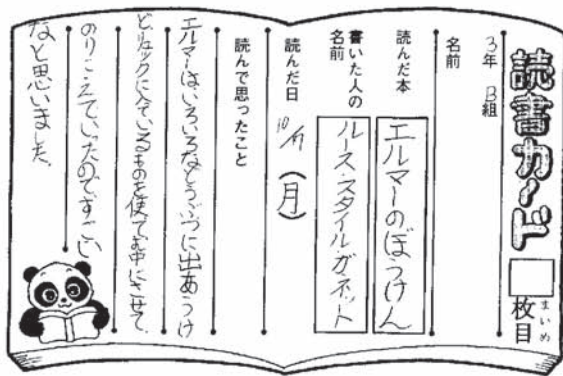 読書カード
枚目
まいめ
3年 B組
名前
読んだ本
エルマーのぼうけん
書いた人の名前
ルース・スタイル・ガネット
読んだ日
10/17 (月)
読んで思ったこと
エルマーはいろいろなどうぶつに出あうけ
どリュックに入ているものを使て
のりこえていったのですごい
なと思いました。